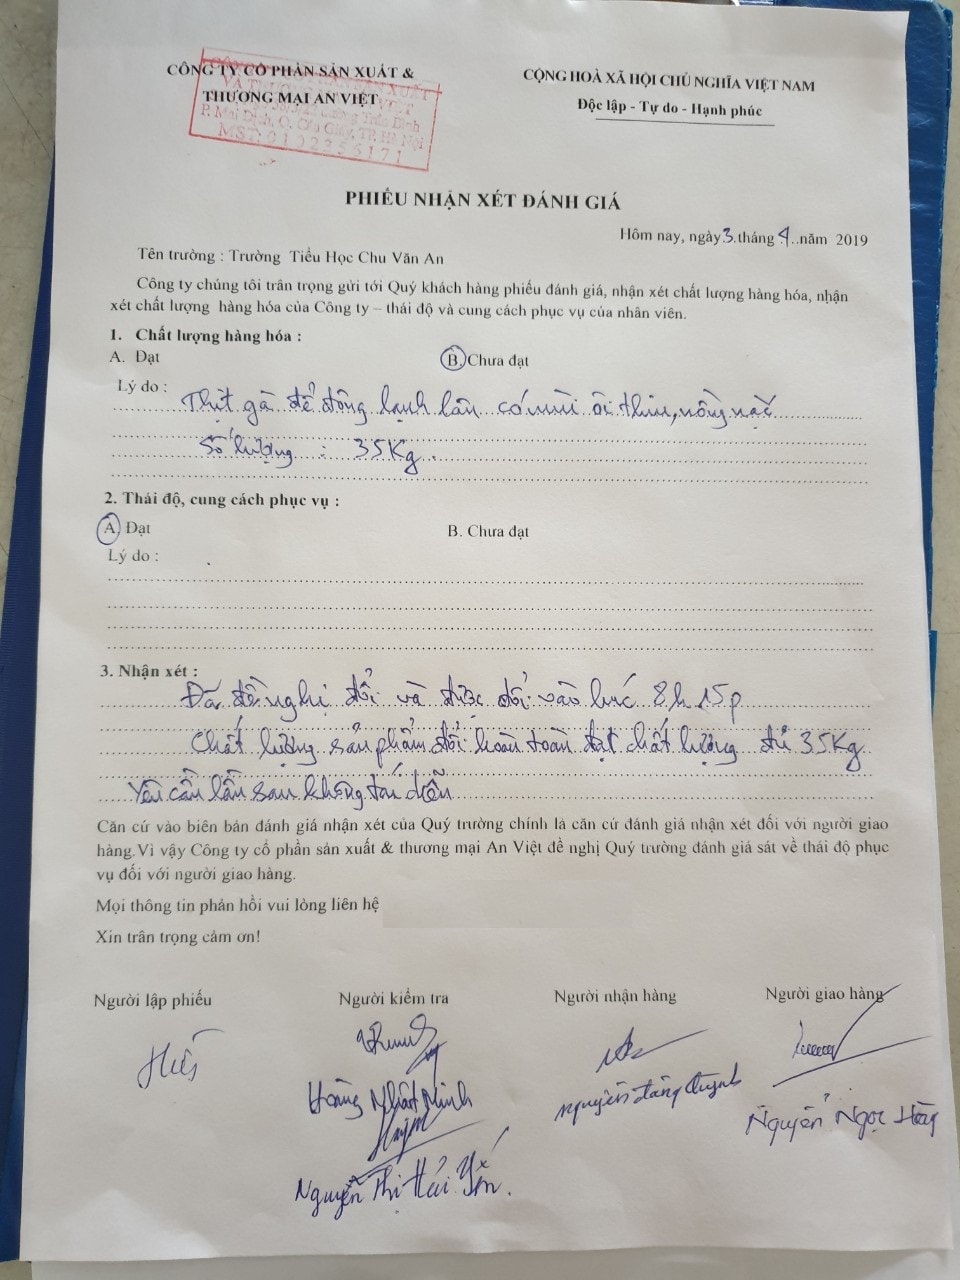 CÔNG TY CỔ PHẦN SẢN XUẤT &
THƯƠNG MẠI AN VIỆT
P. Mai Dịch, Q. Cầu Giấy, TP. Hà Nội
CỘNG HOÀ XÃ HỘI CHỦ NGHĨA VIỆT NAM
Độc lập - Tự do - Hạnh phúc
PHIẾU NHẬN XÉT ĐÁNH GIÁ
Hôm nay, ngày 3 tháng 4 năm 2019
Tên trường : Trường Tiểu Học Chu Văn An
Công ty chúng tôi trân trọng gửi tới Quý khách hàng phiếu đánh giá, nhận xét chất lượng hàng hóa, nhận
xét chất lượng hàng hóa của Công ty – thái độ và cung cách phục vụ của nhân viên.
1. Chất lượng hàng hóa :
A. Đạt B. Chưa đạt
Lý do :
Thịt gà để đông lạnh lâu có mùi ôi thiu, nồng nặc
Số lượng : 35Kg.
2. Thái độ, cung cách phục vụ :
A. Đạt B. Chưa đạt
Lý do :
3. Nhận xét :
Đã đề nghị đổi và được đổi vào lúc 8h 15p
Chất lượng sản phẩm đổi hoàn toàn đạt chất lượng đủ 35Kg
Yêu cầu lần sau không tái diễn
Căn cứ vào biên bản đánh giá nhận xét của Quý trường chính là căn cứ đánh giá nhận xét đối với người giao
hàng.Vì vậy Công ty cổ phần sản xuất & thương mại An Việt đề nghị Quý trường đánh giá sát về thái độ phục
vụ đối với người giao hàng.
Mọi thông tin phản hồi vui lòng liên hệ
Xin trân trọng cảm ơn!
Người lập phiếu Người kiểm tra Người nhận hàng Người giao hàng
Hoàng Nhật Minh
Nguyễn Đăng Quỳnh
Nguyễn Ngọc
Nguyễn Thị Hải Yến.